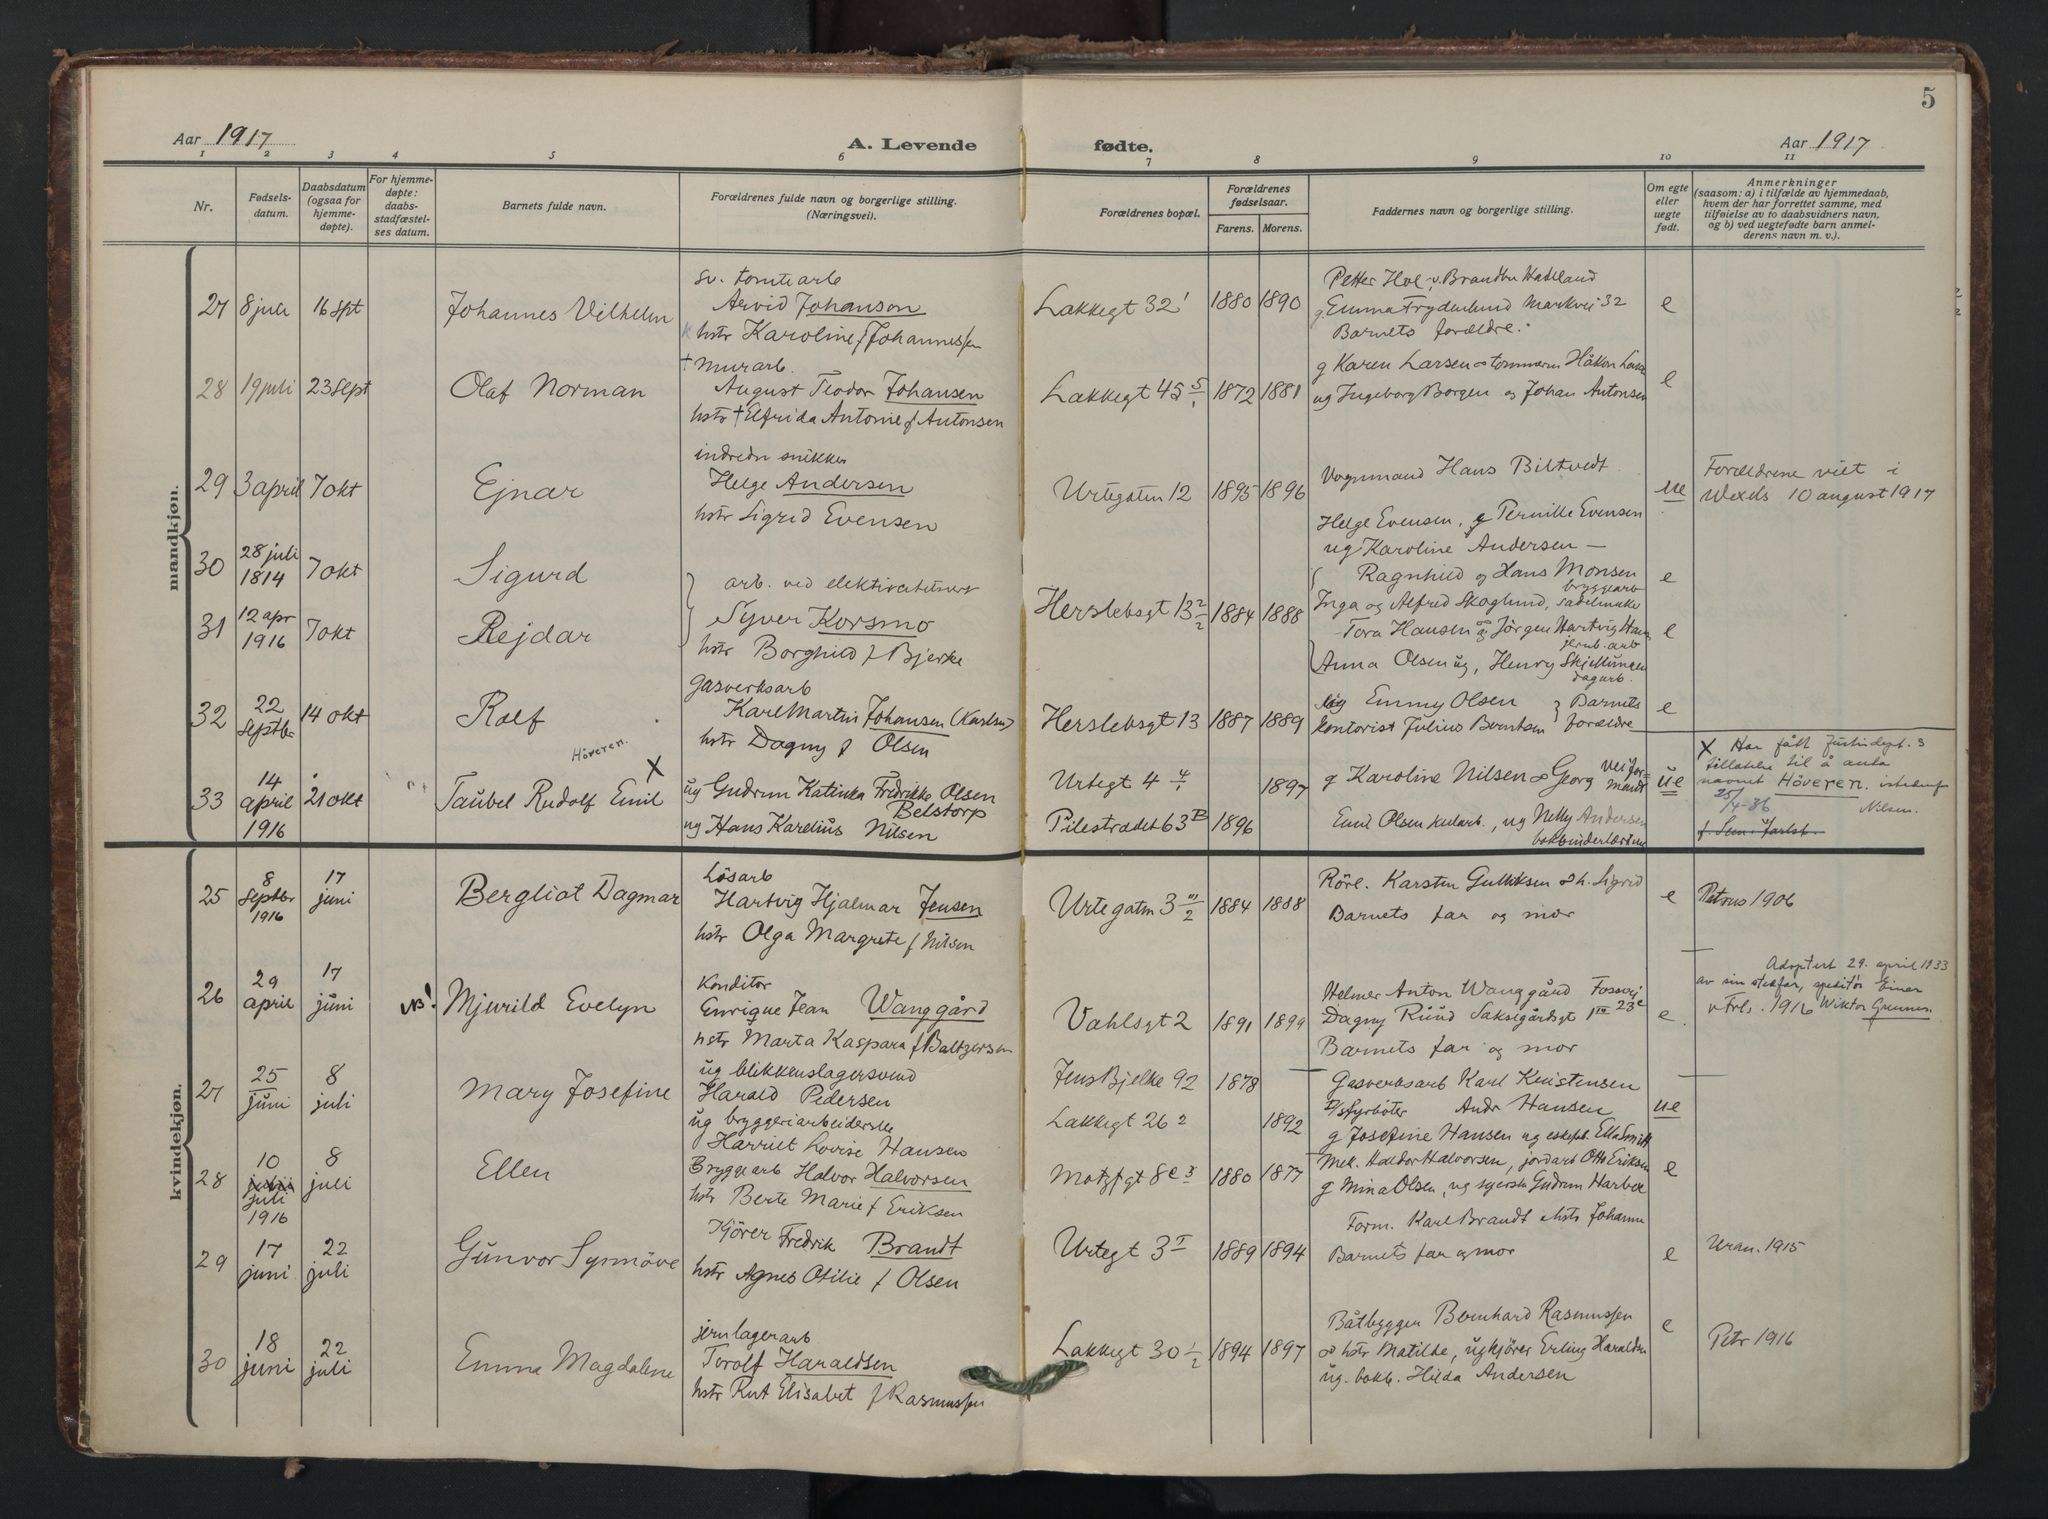 5
Aar 1917
A. Levende
fødte.
Aar 1917
1 2 3 4 5 6 7 8 9 10 11
Nr.
Fødsels-
datum.
Daabsdatum
(ogsaa for
hjemme-
døpte).
For hjemme-
døpte:
daabs-
stadfæstel-
ses datum.
Barnets fulde navn.
Forældrenes fulde navn og borgerlige stilling.
(Næringsvei).
Forældrenes bopæl.
Forældrenes
fødselsaar.
Farens. Morens.
Faddernes navn og borgerlige stilling.
Om egte
eller
uegte
født.
Anmerkninger
(saasom: a) i tilfælde av hjemmedaab,
hvem der har forrettet samme, med
tilføielse av to daabsvidners navn,
og b) ved uegtefødte barn anmel-
derens navn m. v.).
mandkjøn.
27 8 juli 16 spt
Johannes Vilhelm
sv. tomtearb
Arvid Johanson
hstr Karoline f Johannessen
Lakkegt 32
1880 1890
Petter Hol
Emma Frydenlund Markvei 32
Barnets forældre
e
28 19 juli 23 sept
Olaf Norman
murarb.
August Teodor Johansen
hstr + Elfrida Antonie f Antonsen
Lakkegt 45 5/1
1872 1881
g Karen Larsen
ug Ingeborg Borgen og Johan Antonsen
e
29 3 april 7 okt
Ejnar
indredn snikker
Helge Andersen
hstr Sigrid Evensen
Urtegaten 12
1895 1896
Vognmand Hans Biltvedt
Helge Evensen, g Pernille Evensen
ug Karoline Andersen —
ue
Forældrene viet i
Wexels 10 august 1917
30 28 juli 1814 7 okt
Sigurd
31 12 apr 1916 7 okt
Rejdar
arb. ved
Syver Korsmo
hstr Borghild f Bjerke
Herslebsgt 13 2/2
1884 1888
Ragnhild og Hans Monsen
bryggearb
Inga og Alfred Skoglund,
Tora Hansen og Jörgen Hartvig
jernb. arb
Anna Olsen ug, Henry
dagarb.
e
e
32 22 septbr 14 okt
Rolf
gasverksarb
Karl Martin Johansen (Karlsen)
hstr Dagny f Olsen
Herslebsgt 13
1887 1889
Emmy Olsen
kontorist Julius Berntsen
Barnets
forældre
e
33 14 april 1916 21 okt
Höveren.
X
Taubel Rudolf Emil
ug Gudrun Katinka Fredrikke Olsen
Belstorp
ug Hans Karelius Nilsen
Urtegt 4 4/1
1897
Pilestrædet 63 B
1896
g Karoline Nilsen Georg
Emil Olsen, ug Nelly Andersen
ue
X Har fått Justisdept. s
tillatelse til å anta
navnet Höveren. istedenf
25/4-36
Nilsen.
kvindekjøn.
25 8 septbr 1916 17 juni
Bergliot Dagmar
Lösarb
Hartvig Hjalmar Jensen
hstr Olga Margrete f Nilsen
Urtegaten 3 III/2
1884 1888
Rörl. Karsten Gulliksen h. Sigrid
Barnets far og mor
e
Petrus 1906
26 29 april 17 juni
NB! Mjurild Evelyn
Konditor
Enrique Jean Wanggård
hstr Marta Kaspara f Baltzersen
Vahlsgt 2
1891 1899
Helmer Anton Wanggård Fossvei
23 c
Dagny Ruud Saksegårdsgt 1 III
Barnets far og mor
e
Adoptert 29. april 1933
av sin stefar, speditör Einar
Wiktor
v Frls. 1916
27 25 juni 8 juli
Mary Josefine
ug blikkenslagersvend
Harald Pedersen
ug bryggeriarbeiderske
Harriet Lovise Hansen
Jens Bjelke 92
1878
Lakkegt 26 2
1892
Gasverksarb Karl Kristensen
Andr Hansen
g Josefine Hansen ug Ella Smith
ue
28 10 juli 1916 8 juli
Ellen
Bryggearb Halvor Halvorsen
hstr Berte Marie f Eriksen
Motzfgt 8 c 3
1880 1877
Mek. Haldor Halvorsen, jordarb Otto Eriksen
g Mina Olsen, ug syerske Gudrun
e
29 17 juni 22 juli
Gunvor Synnöve
Kjörer Fredrik Brandt
hstr Agnes Otilie f Olsen
Urtegt 3 I
1889 1894
Form. Karl Brandt hstr Johanne
Barnets far og mor
e
Uran. 1915
30 18 juni 22 juli
Emma Magdalene
jernlagerarb
Torolf Haraldsen
hstr Rut Elisabet f Rasmussen
Lakkegt 30 1/2
1894 1897
Båtbygger Bernhard Rasmussen
hstr Matilde, ug kjörer Erling Haraldsen
ug. bokb. Hilda Andersen
e
Petr 1916